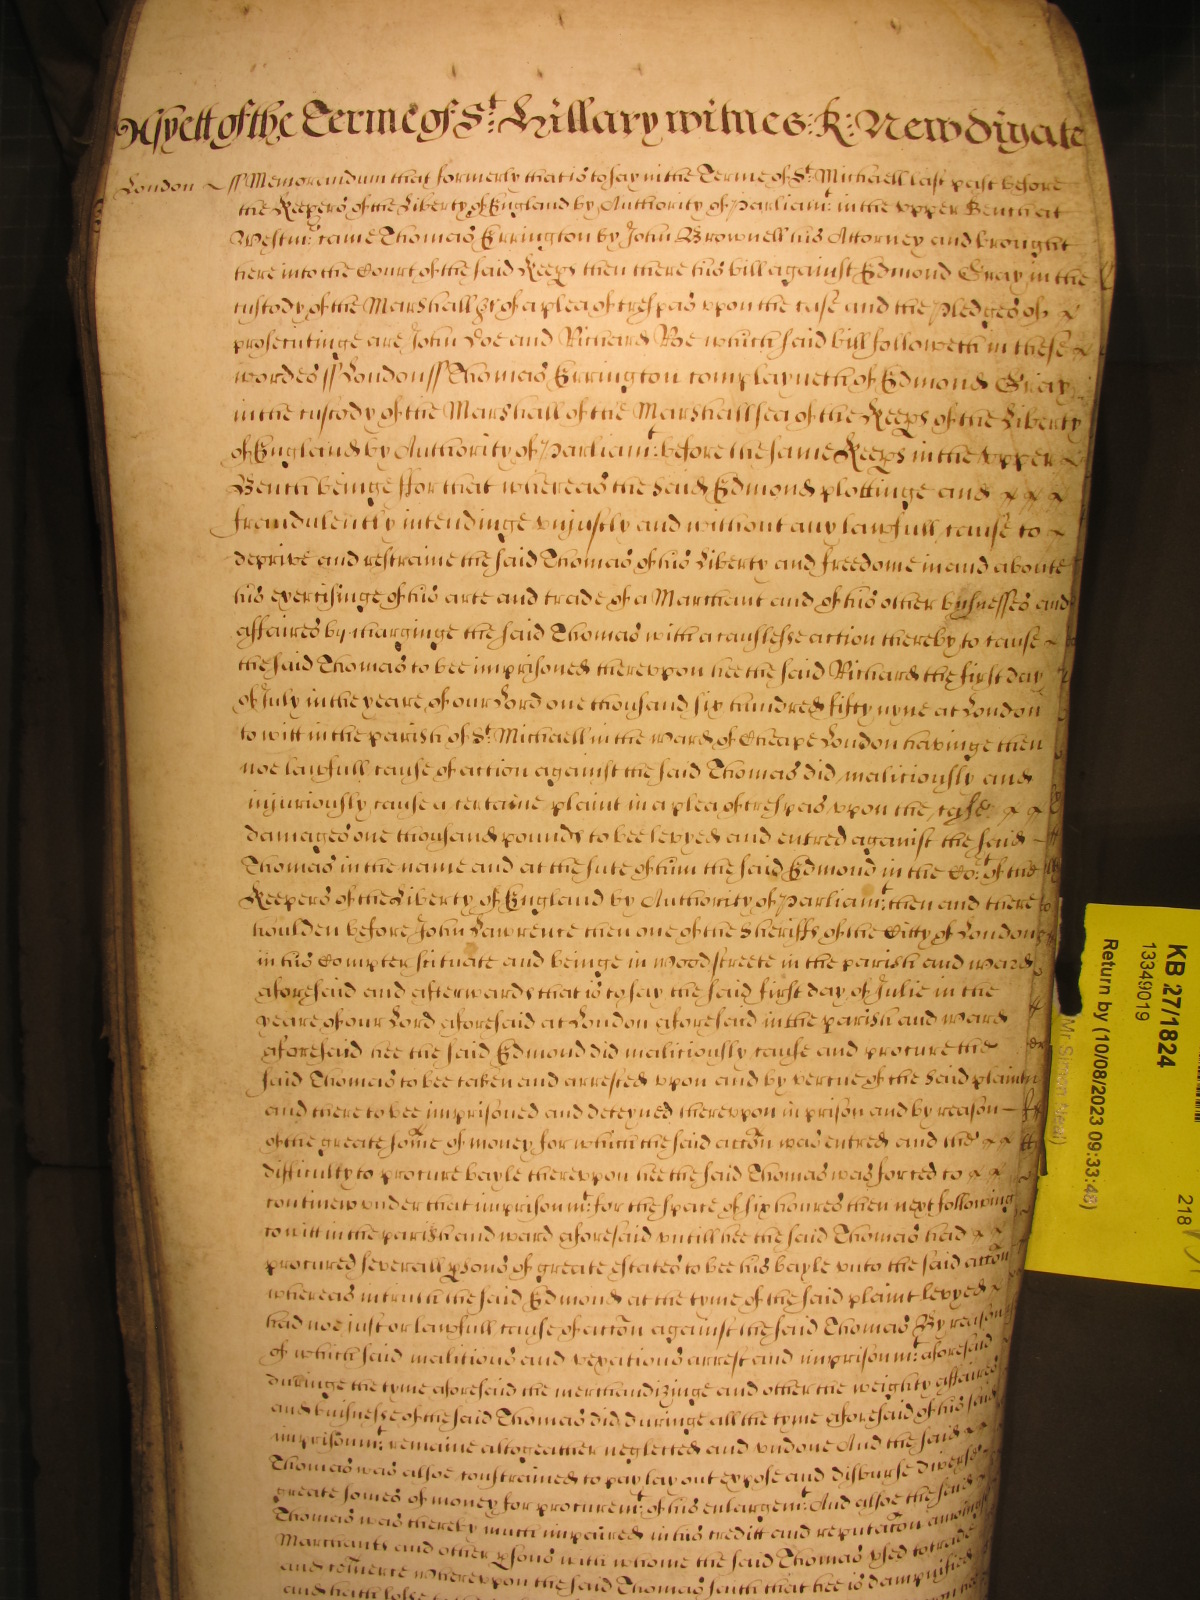 As yett of the Terme of St: Hillary witnes: R: Newdigate
London ~ ss Memorandum that formerly that is to say in the Terme of St: Michaell last past before
the Keepers of the Liberty of England by Authority of Parliamt: in the vpper Bench at
Westmr: came Thomas Errington by John Brownell his Attorney and brought
here into the Court of the said Keeps then there his bill against Edmond Gray in the
custody of the Marshall &c of a plea of trespas vpon the case and the Pledges of
prosecutinge are John Doe and Richard Roe which said bill followeth in these
wordes ss London ss Thomas Errington complayneth of Edmond Gray
in the custody of the Marshall of the Marshallsea of the Keeps of the Liberty
of England by Authority of Parliamt: before the same Keeps in the vpper
Bench beinge ffor that whereas the said Edmond plottinge and
fraudulently intendinge vnjustly and without any lawfull cause to
deprive and restraine the said Thomas of his Liberty and freedome in and aboute
his exercisinge of his arte and trade of a Marchant and of his other busnesses and
affaires by charginge the said Thomas with a causlesse action thereby to cause
the said Thomas to bee imprisoned therevpon hee the said Richard the first day
of July in the yeare of our Lord one thousand six hundred fifty nyne at London
to witt in the parish of St: Michaell in the ward of Cheape London havinge then
noe lawfull cause of action against the said Thomas did maliciously and
injuriously cause a certaine plaint in a plea of trespas vpon the case
damages one thousand pounds to bee levyed and entred against the said
Thomas in the name and at the sute of him the said Edmond in the Cot: of the
Keepers of the Liberty of England by Authority of Parliamt: then and there
houlden before John Lawrence then one of the Sheriffs of the Citty of London
in his Compter scituate and beinge in Woodstreete in the parish and ward
aforesaid and afterwards that is to say the said first day of Julie in the
yeare of our Lord aforesaid at London aforesaid in the parish and ward
aforesaid hee the said Edmond did maliciously cause and procure the
said Thomas to bee taken and arrested vpon and by vertue of the said plaint
and there to bee imprisoned and deteyned therevpon in prison and by reason
of the greate some of money for which the said accon was entred and the
difficulty to procure bayle therevpon hee the said Thomas was forced to
continew vnder that imprisonmt: for the space of six houres then next following
to witt in the parish and ward aforesaid vntill hee the said Thomas had
procured severall psons of greate estates to bee his bayle vnto the said accon
whereas in truth the said Edmond at the tyme of the said plaint levyed
had noe just or lawfull cause of accon against the said Thomas By reason
of which said malitious and vexatious arrest and imprisonmt: aforesaid
duringe the tyme aforesaid the merchandizinge and other the weighty affaires
and buisnesse of the said Thomas did duringe all the tyme aforesaid of his said
imprisonmt: remaine altogeather neglected and vndone And the said
Thomas was alsoe constrained to pay lay out expose and disburse divers
greate somes of money for procuremt: of his enlargemt: And alsoe the said
Thomas was thereby much impaired in his creditt and reputacon amongst
Marchants and other psons with whome the said Thomas vsed to trade
and comerce Wherevpon the said Thomas saith that hee is dampnified
and hath losse to
KB 27/1824
13349019
218
Return by (10/08/2023 09:33:48)